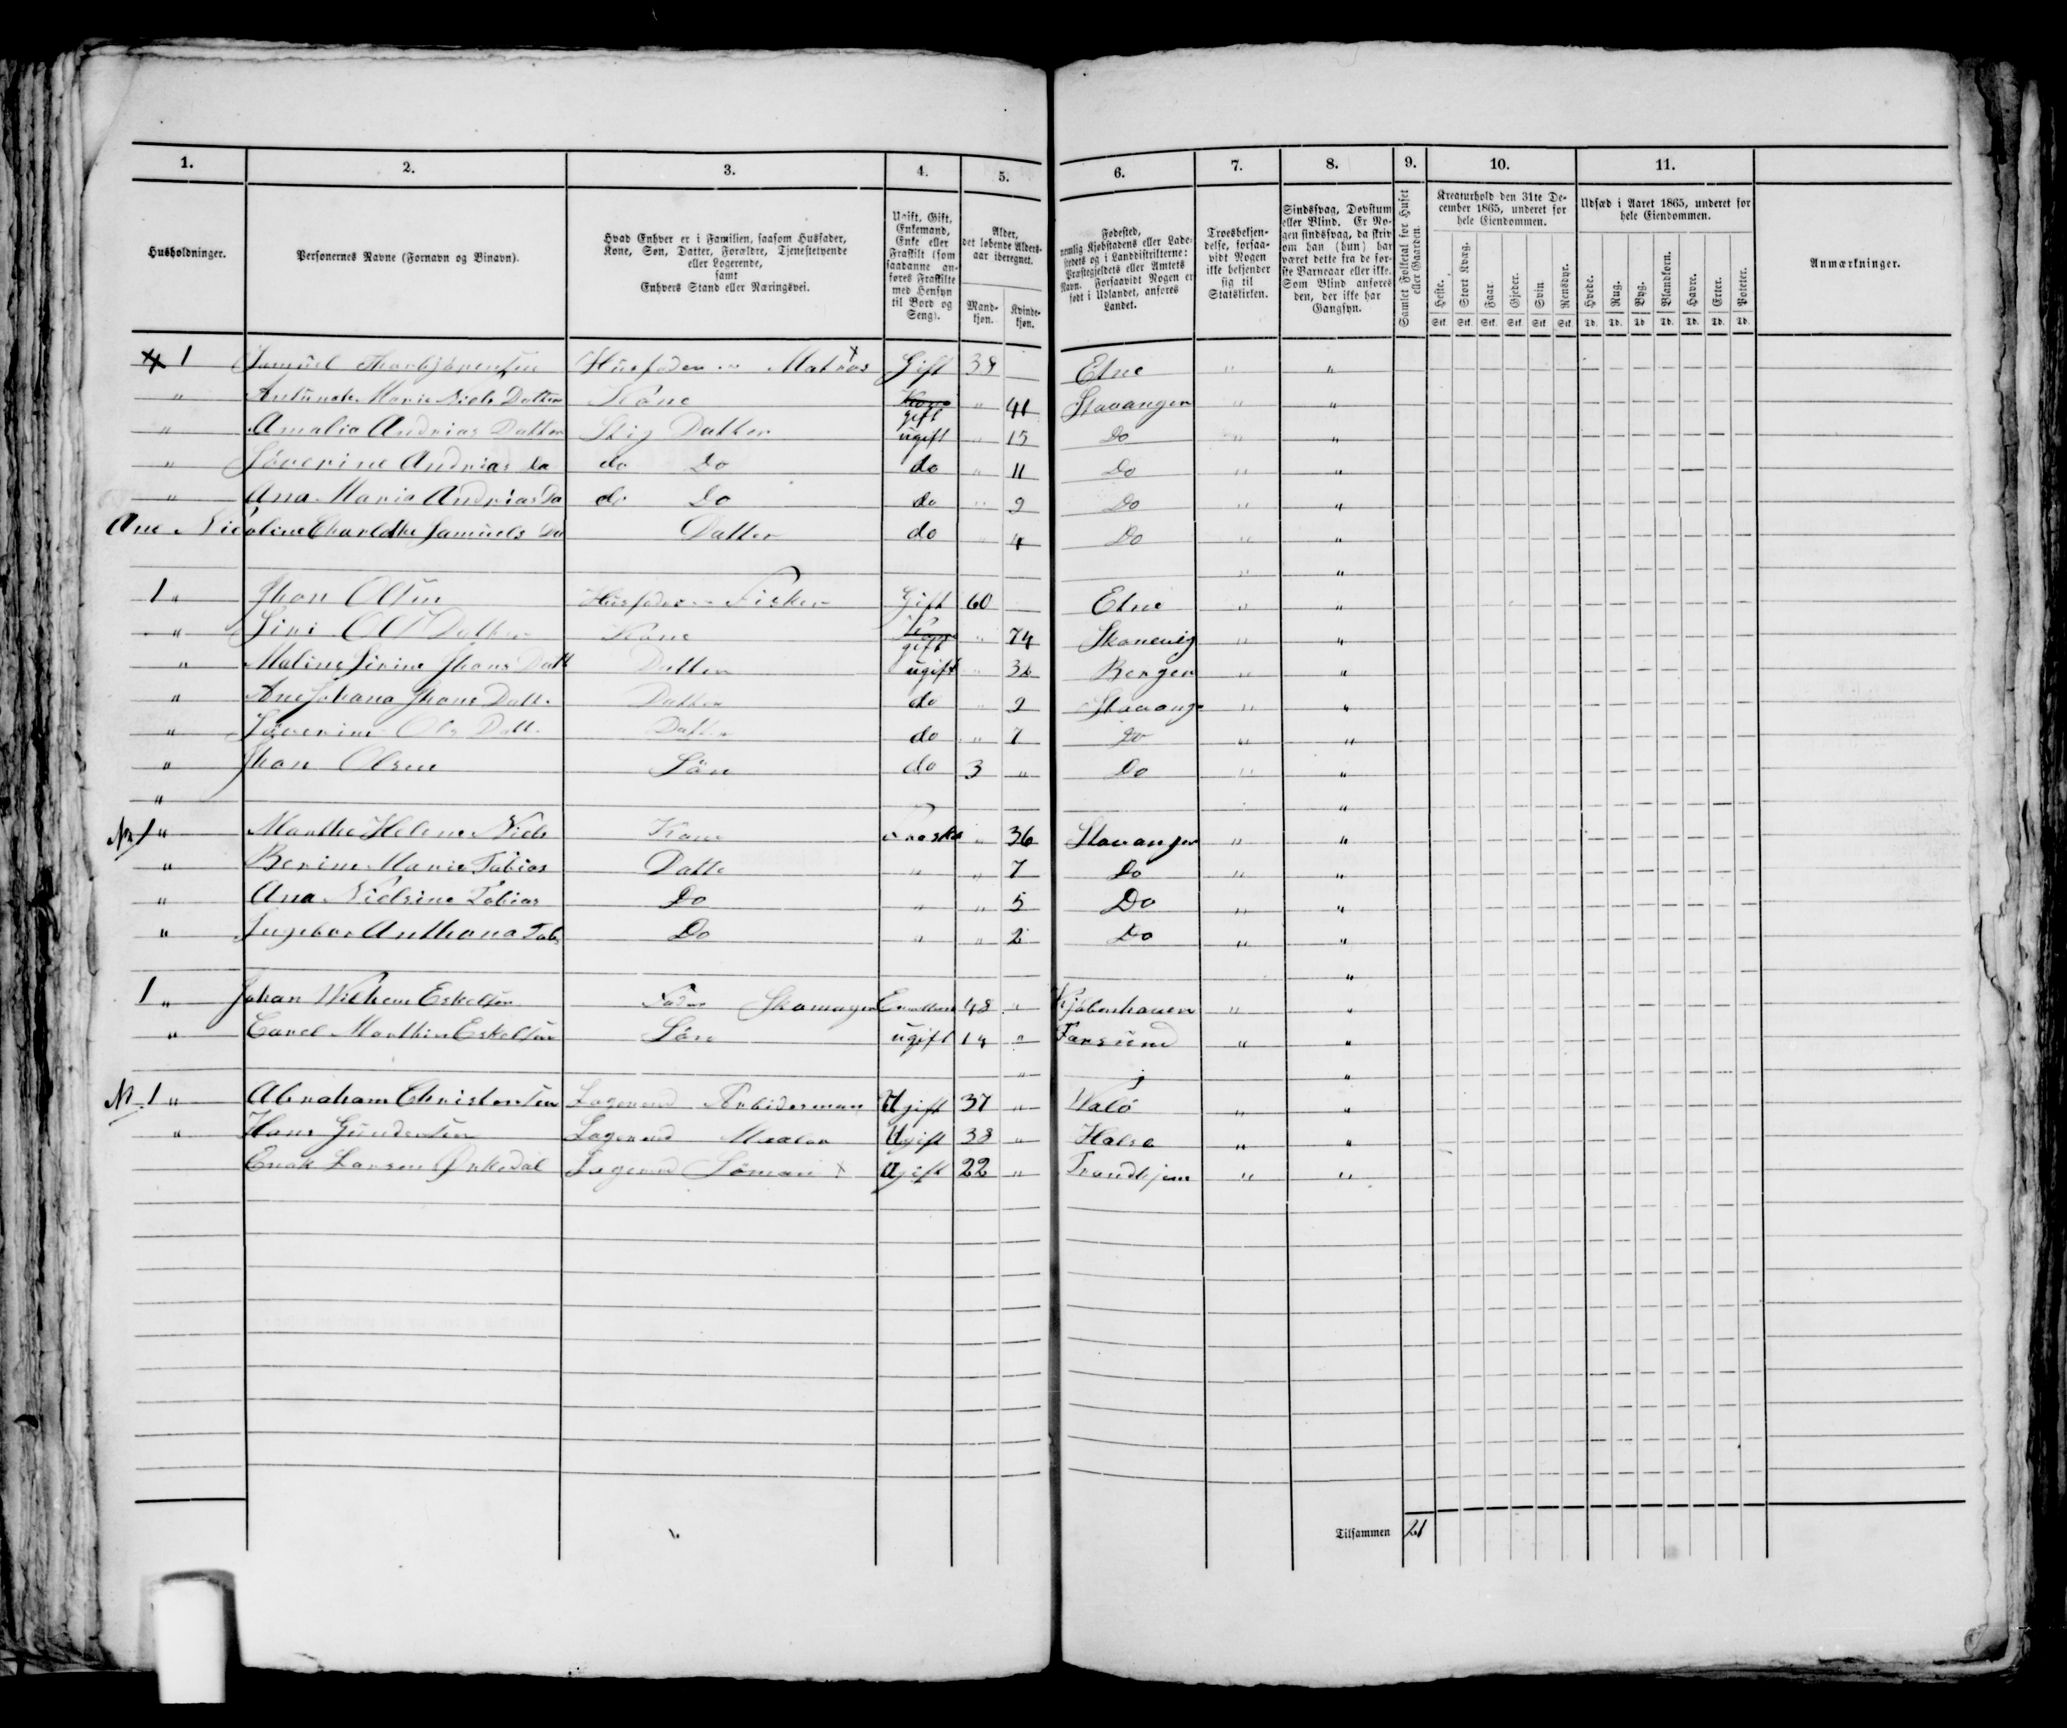 1. 2. 3. 4. 5. 6. 7. 8. 9. 10. 11.
Husholdninger.
Personernes Navne (Fornavn og Binavn).
Hvad Enhver er i Familien, saasom Husfader,
Kone, Søn, Datter, Forældre, Tjenestetyende
eller Logerende,
samt
Enhvers Stand eller Næringsvei.
Ugift, Gift,
Enkemand,
Enke eller
Fraskilt (som
saadanne an-
føres Fraskilte
med Hensyn
til Bord og
Seng).
Alder,
det løbende Alders-
aar iberegnet.
Mand-
kjøn.
Kvinde-
kjøn.
Fødested,
nemlig Kjøbstadens eller Lade-
stedets og i Landdistrikterne:
Præstegjeldets eller Amtets
Navn. Forsaavidt Nogen er
født i Udlandet, anføres
Landet.
Troesbekjen-
delse, forsaa-
vidt Nogen
ikke bekjender
sig til
Statskirken.
Sindssvag, Døvstum
eller Blind. Er No-
gen sindssvag, da skriv
om han (hun) har
været dette fra de før-
ste Barneaar eller ikke.
Som Blind anføres
den, der ikke har
Gangsyn.
Samlet Folketal for Huset
eller Gaarden.
Kreaturhold den 31te De-
cember 1865, underet for
hele Eiendommen.
Heste. Stort Kvæg. Faar. Gjeder. Svin. Rensdyr.
Stk. Stk. Stk. Stk. Stk. Stk.
Udsæd i Aaret 1865, underet for
hele Eiendommen.
Hvede. Rug. Byg. Blandkorn. Havre. Erter. Poteter.
Td. Td. Td. Td. Td. Td. Td.
Anmærkninger.
1 Samuel Thorbjørensen Husfader Matros Gift 38 Etne
" Marie Niels Datter Kone Kone gift " 41 Stavanger " "
" Amalia Andrias Datter Stig Datter ugift " 15 Do " "
" Søverine Andrias Da do Do do " 11 Do " "
" Ana Maria Andrias Da do Do do " 9 Do " "
Ane Nicoline Samuels Da Datter do " 4 Do " "
1 " Jhon Olsen Husfader Fisker Gift 60 Etne " "
" Siri Ols Datter Kone Kone gift " 74 Skonevig "
" Maline Sirine Jhons Datt Datter ugift " Bergen " "
" Ane Johana Jhons Datt. Datter do " 9 Stavang " "
" Søverine Ols Datt. Datter do " 7 Do " "
" Jhon Olsen Sön do 3 " Do " "
1 " Marthe Helene Niels Kone " 36 Stavanger " "
" Berine Marie Tobias Datte " " 7 Do " "
" Ana Nielsine Tobias Do " " 5 Do " "
" Ingebor Anthona Tob Do " " 2 Do " "
1 " Johan Wilhem Eskelsen Fader Skomager 48 " Kjøbenhaven " "
" Carel Marthin Eskelsen Sön ugift 14 " Farsund " "
1 " Abraham Christensen Logerend Arbidesman Ugift 37 " " "
" Hans Gundersen Logerend Maaler Ugift 38 " Halse " "
Larsen Ørkedal Logerend Sömand Ugift 22 " Trondhjem " "
Tilsammen 21